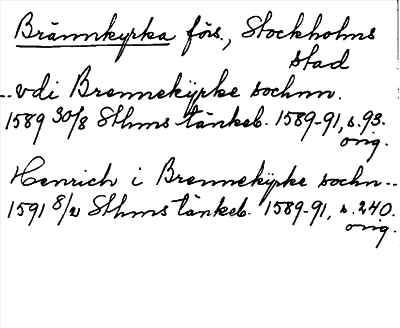 Brännkyrka förs., Stockholms
stad
..vdi Brennekÿrke sochnn.
1589 30/8 Sthms tänkeb. 1589-91, s. 93.
orig.
Henrich i Brennekÿrke sochn..
1591 8/2 Sthms tänkeb. 1589-91, s. 240.
orig.